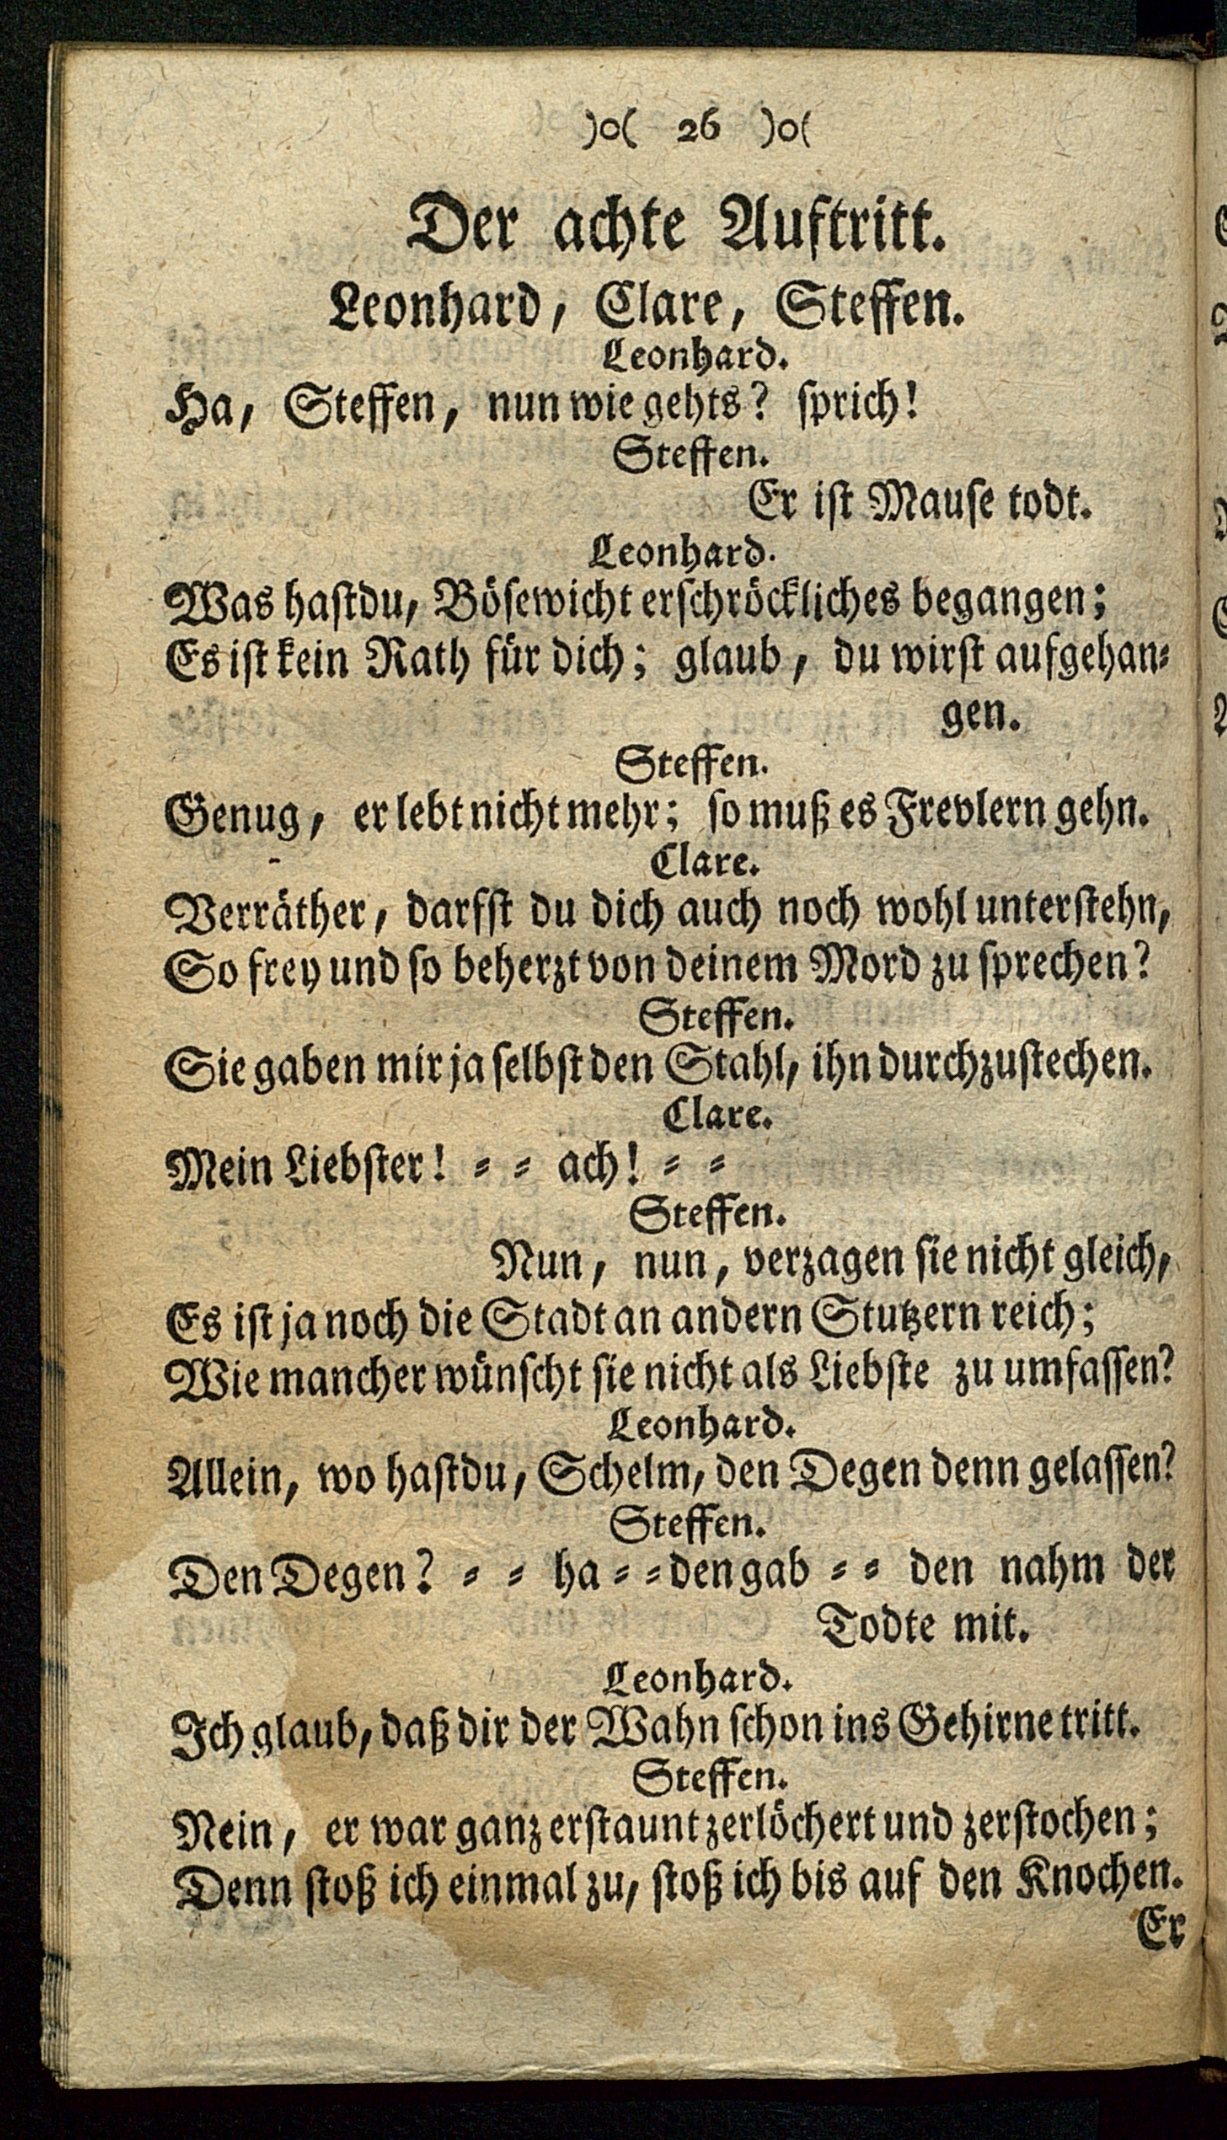 )o( 26 )o(
Der achte Auftritt.
Leonhard, Clare, Steffen.
Leonhard.
Ha, Steffen, nun wie gehts? sprich!
Steffen.
Er ist Mause todt.
Leonhard.
Was hastdu, Bösewicht erschröckliches begangen;
Es ist kein Rath für dich; glaub, du wirst aufgehan⸗
gen.
Steffen.
Genug, er lebt nicht mehr; so muß es Frevlern gehn.
Clare.
Verräther, darfst du dich auch noch wohl unterstehn,
So frey und so beherzt von deinem Mord zu sprechen?
Steffen.
Sie gaben mir ja selbst den Stahl, ihn durchzustechen.
Clare.
Mein Liebster! ⸗ ⸗ ach! ⸗ ⸗
Steffen.
Nun, nun, verzagen sie nicht gleich,
Es ist ja noch die Stadt an andern Stutzern reich;
Wie mancher wünscht sie nicht als Liebste zu umfassen?
Leonhard.
Allein, wo hastdu, Schelm, den Degen denn gelassen?
Steffen.
Den Degen? ⸗ ⸗ ha ⸗ ⸗ den gab ⸗ ⸗ den nahm der
Todte mit.
Leonhard.
Ich glaub, daß dir der Wahn schon ins Gehirne tritt.
Steffen.
Nein, er war ganz erstaunt zerlöchert und zerstochen;
Denn stoß ich einmal zu, stoß ich bis auf den Knochen.
Er